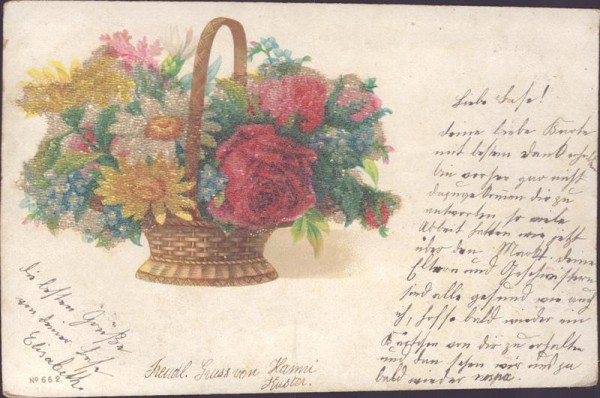 Liebe Base!
deine liebe Karte
mit bestem Dank erhalt
bin vorher gar nicht
dazugekommen dir zu
antworten, so viele
Arbeit hatten wir jetzt
über den Markt. deine
Eltern und Geschwistern
sind alle gesund wie auch
ich, hoffe bald wieder ein
Kärtchen von dir zu erhalten
und dan sehen wir uns ja
bald wieder
die besten Grüße
von deiner Base
Elisabeth.
Freudl. Gruss von Hanni
Kuster.
No 662.